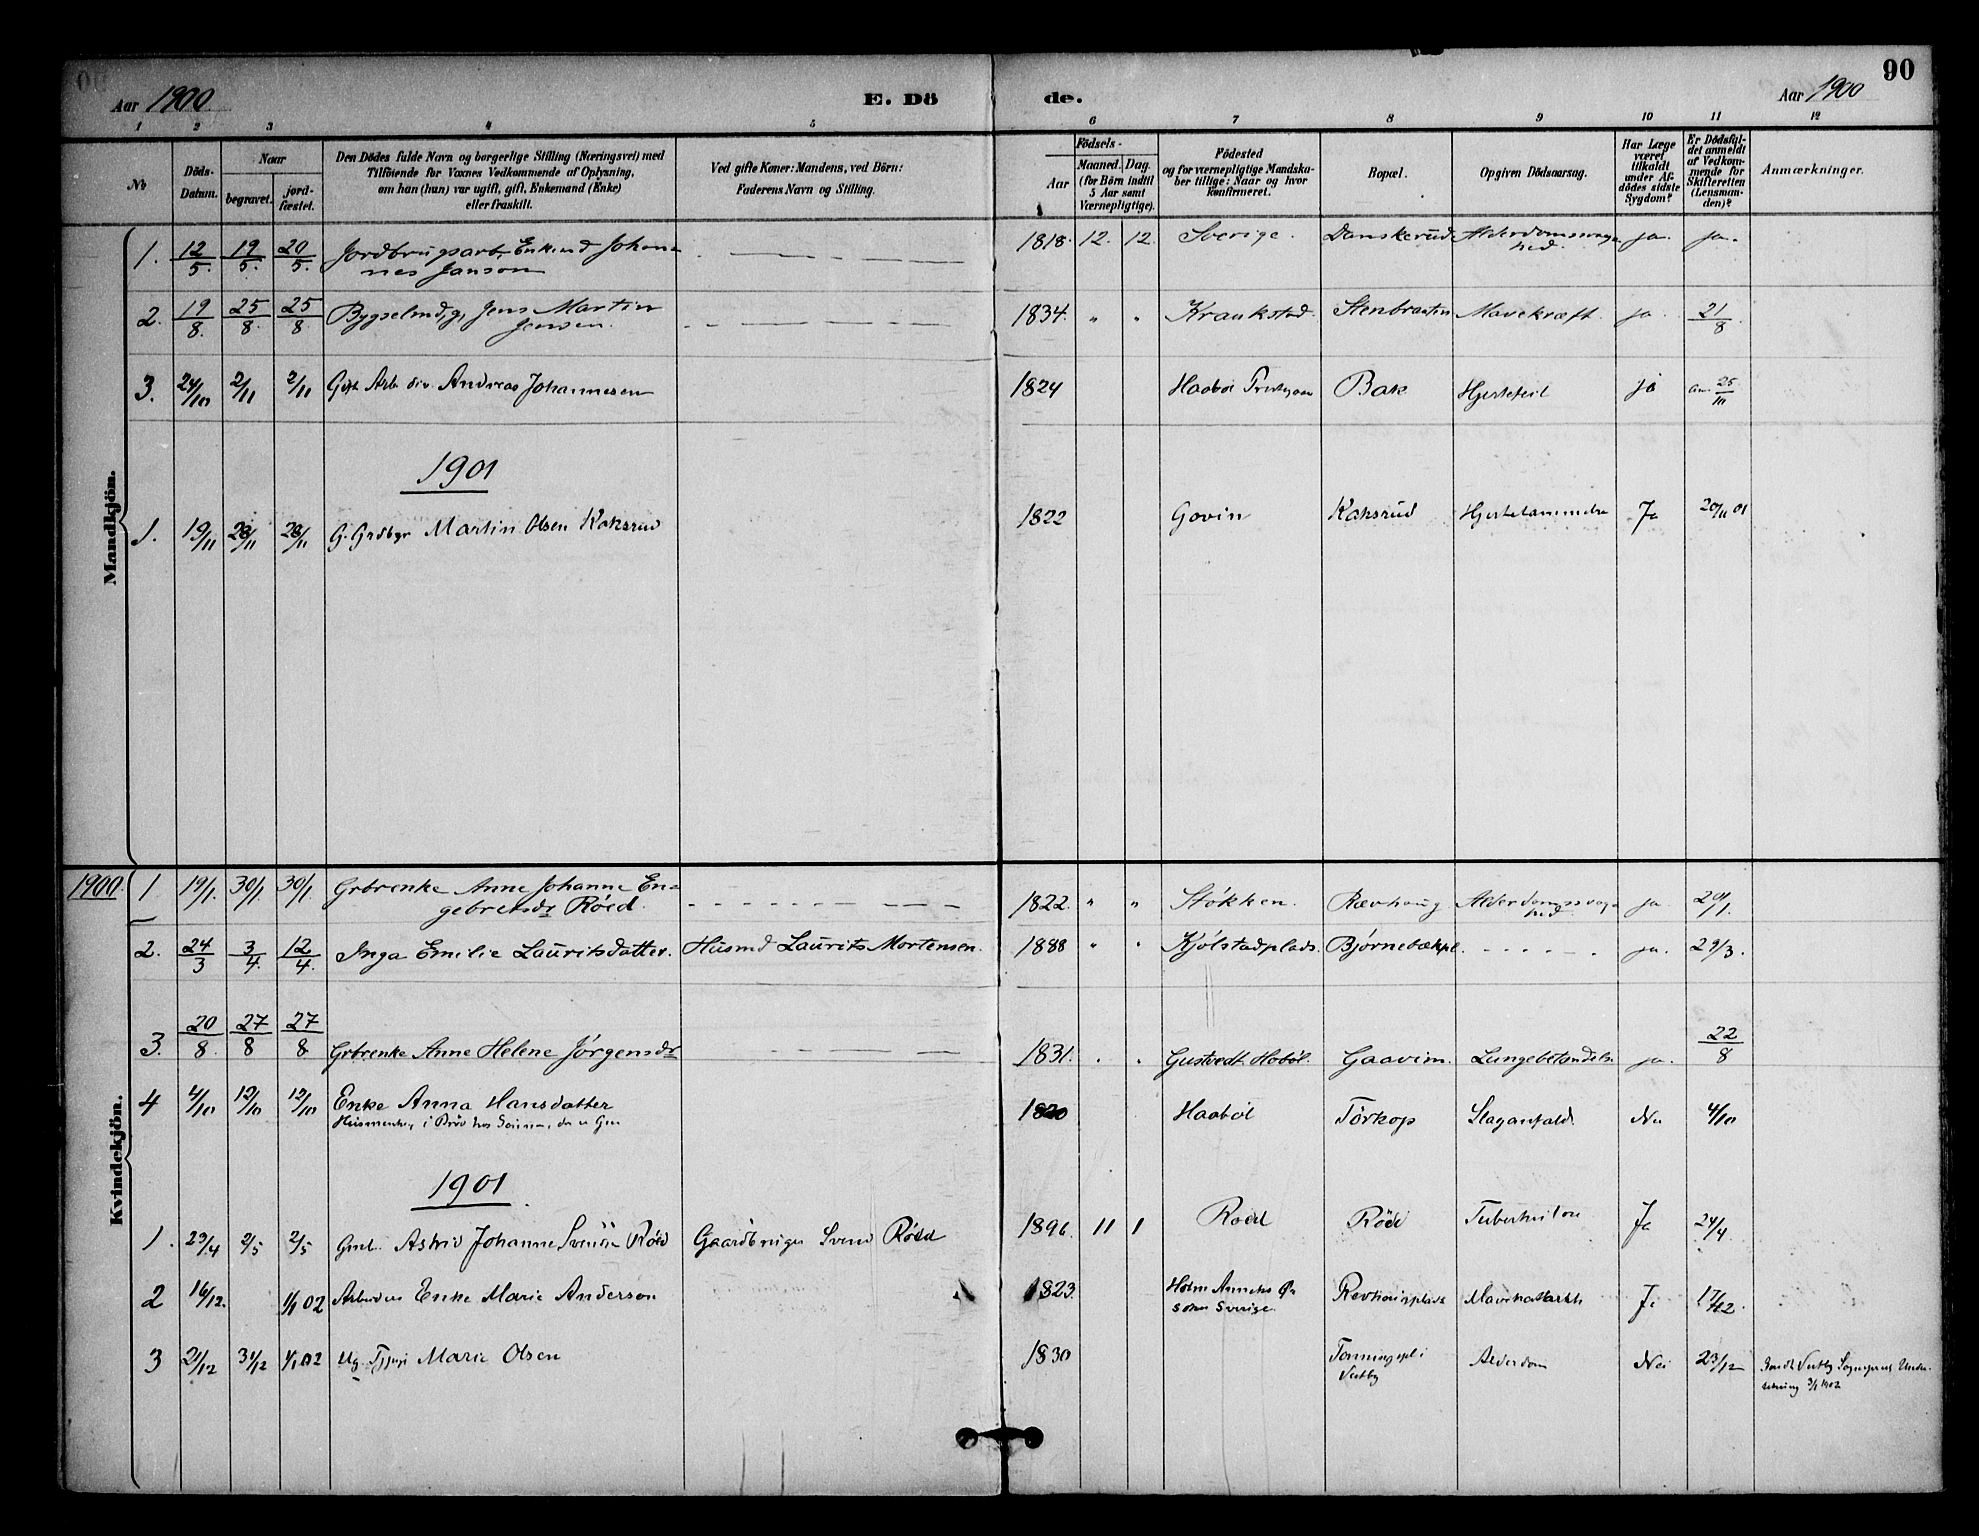 Aar 1900
E. Dö
de.
90
Aar 1900
1 2 3 4 5 6 7 8 9 10 11 12
No
Döds-Datum.
Naar
begravet.
jord-fæstet.
Den Dödes fulde Navn og borgerlige Stilling (Næringsvei) med
Tilföiende for Voxnes Vedkommende af Oplysning,
om han (hun) var ugift, gift, Enkemand (Enke)
eller fraskilt.
Ved gifte Koner: Mandens, ved Börn:
Faderens Navn og Stilling.
Födsels-
Aar
Maaned. Dag.
(for Börn indtil
5 Aar samt
Værnepligtige).
Födested
og for værnepligtige Mandska-
ber tillige: Naar og hvor
konfirmeret.
Bopæl.
Opgiven Dödsaarsag.
Har Læge
været
tilkaldt
under Af-
dödes sidste
Sygdom?
Er Dödsfal-
det anmeldt
af Vedkom-
mende for
Skifteretten
(Lensman-
den)?
Anmærkninger.
Mandkjön.
1. 12/5. 19/5. 20/5. Jordbrugsarb. Enkemd Johan-
nes Janson
1818. 12. 12. Sverige. Danskerud Alderdomssvag-
hed. ja. ja.
2. 19/8. 25/8. 25/8. Jens Martin
Jensen.
1834. " " Kraakstad. Stenbraaten Mavekræft. ja. 21/8.
3. 24/10 2/11 2/11 Andreas Johannesen
1824 Haabøl Bak Hjertefeil ja 25/10
1901
1. 19/11 28/11 28/11 G. Grdbgr Martin Olsen Kaksrud
1822 Govin Kaksrud Ja 20/11 01
Kvindekjön.
1900. 1 19/1. 30/1. 30/1. Grbrenke Anne Johanne En-
gebretsdr Røed.
1822. " " Støkken. Revhaug Alderdomssvag-
hed. ja. 20/1.
2. 24/3 3/4. 12/4. Inga Emilie Lauritsdatter. Husmd Laurits Mortensen.
1888 " " Kjølstadplads. Bjørnebækpl. ja. 29/3.
3. 20/8. 27/8 27/8 Grbrenke Anne Helene Jørgensdr
1831. " " Gustvedt. Hobøl. Gaavim. Lungebetændelse ja. 22/8
4 4/10 12/10 12/10 Enke Anna Hansdatter
1820 Haabøl Tørkop Slaganfald. Nei 4/10
1901
1. 23/4 2/5 2/5 Astrid Johanne Svendsen Røed Gaardbruger Svend Røed
1896. 11 1 Roed Röed Tuberkulose Ja 24/4
2 16/12. 1/1 02 Arbeider Enke Marie Anderson
1823. Sverige. Revhaugplads Ja 17/12.
3 21/12 31/12 1/1 02 Ug. Marie Olsen
1830 i
Vestby Alderdom Nei 23/12 Vestby
3/1 1902